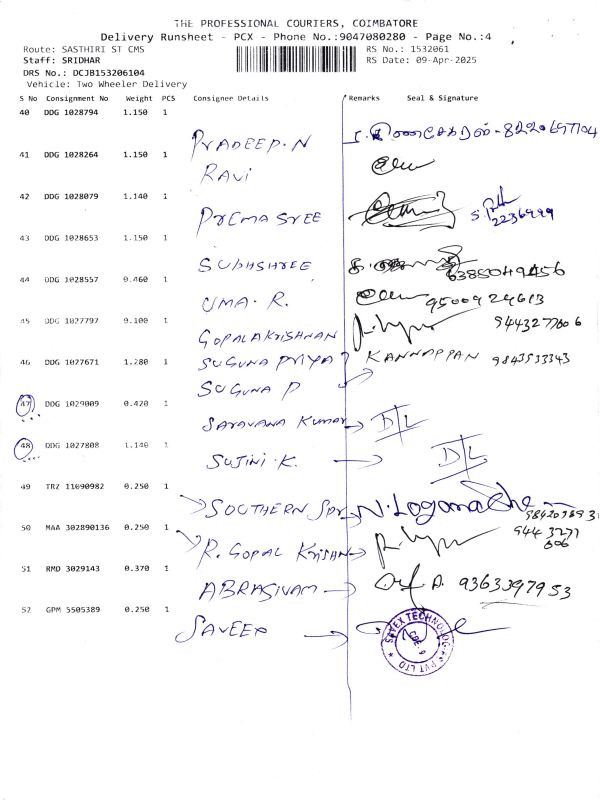 THE PROFESSIONAL COURIERS, COIMBATORE
Delivery Runsheet - PCX - Phone No.:9047080280 - Page No.:4
Route: SASTHIRI ST CMS RS No.: 1532061
Staff: SRIDHAR RS Date: 09-Apr-2025
DRS No.: DCJB153206104
Vehicle: Two Wheeler Delivery
S No Consignment No Weight PCS Consignee Details Remarks Seal & Signature
40 DDG 1028794 1.150 1
PRADEEP.N
41 DDG 1028264 1.150 1
RAVI
42 DDG 1028079 1.140 1
PREMA SREE 2236999
43 DDG 1028653 1.150 1
SUBHSHREE 6385049456
44 DDG 1028557 0.460 1
UMA. R. 9500924613
45 DDG 1027797 0.100 1
GOPALAKRISHNAN 9443277606
46 DDG 1027671 1.280 1
SUGUNA PRIYA KANNAPPAN 9843533343
SUGUNA P
47 DDG 1029009 0.420 1
SARAVANA KUMAR D/L
48 DDG 1027808 1.140 1
SUJINI.K. D/L
49 TRZ 11090982 0.250 1
SOUTHERN
50 MAA 302890136 0.250 1
R. GOPAL KRISHN 9443277606
51 RMD 3029143 0.370 1
ABRASIVAM A. 9363397953
52 GPM 5505389 0.250 1
SAVEEX